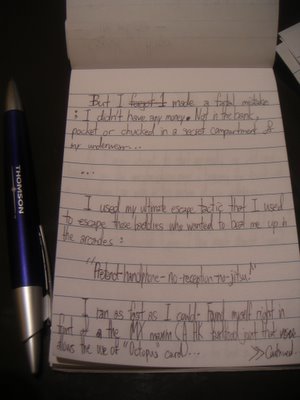 But I forgot I made a fatal mistake
: I didn't have any money. Not in the bank,
pocket or chucked in a secret compartment of
my underwear...
...
I used my ultimate escape tactic that I used
to escape those baddies who wanted to beat me up in
the arcades:
"Pretend-handphone-no-reception-no-jitsu!"
I ran as fast as I could. Found myself right in
front of a the MX maxim (A HK fast food joint that
allows the use of "Octopus" card...
>> Continued
THOMSON